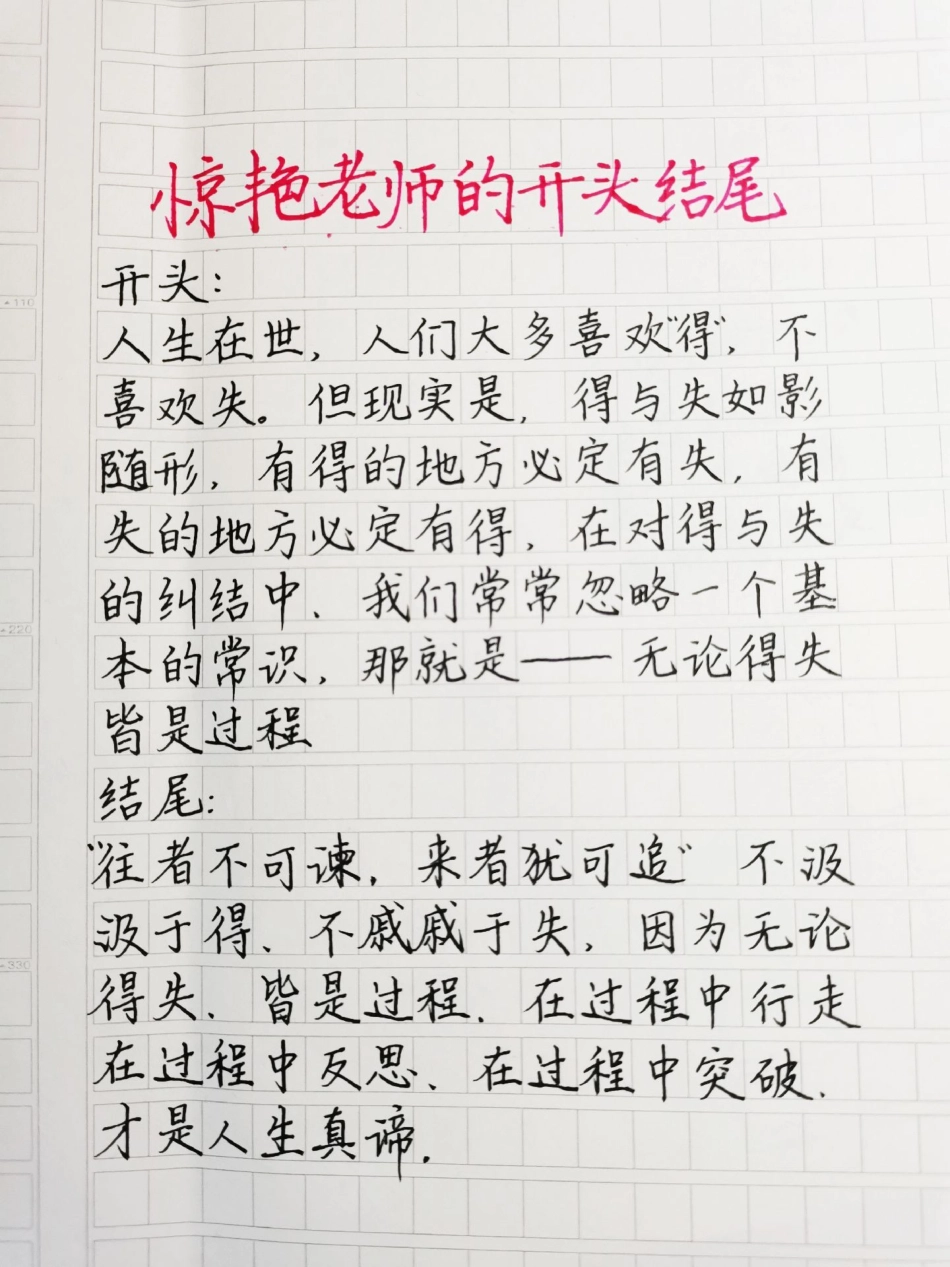 惊艳老师的开头结尾
开头：
人生在世，人们大多喜欢"得"，不
喜欢失。但现实是，得与失如影
随形，有得的地方必定有失，有
失的地方必定有得，在对得与失
的纠结中、我们常常忽略一个基
本的常识，那就是——无论得失
皆是过程
结尾：
"往者不可谏，来者犹可追"不汲
汲于得、不戚戚于失，因为无论
得失、皆是过程．在过程中行走
在过程中反思、在过程中突破．
才是人生真谛．
110
220
330